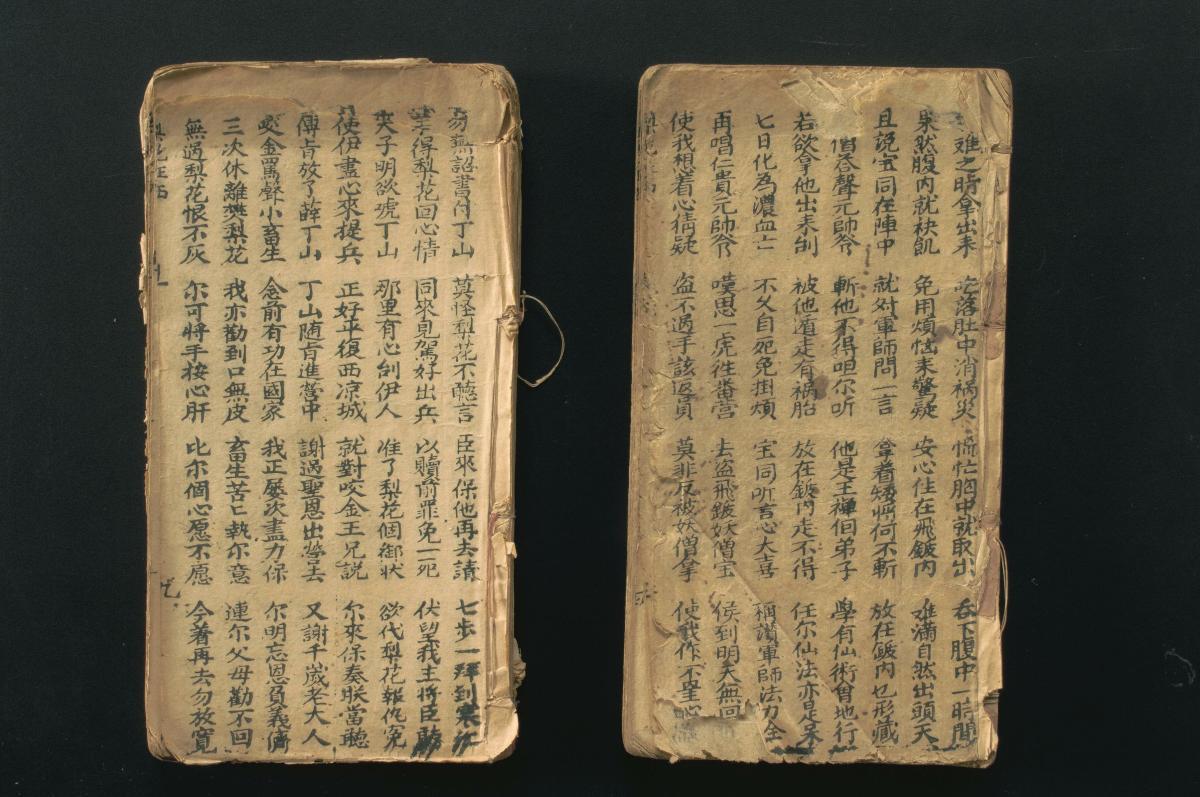 难之時拿出来 吃落肚中消禍災 慌忙胸中就取出 吞下腹中一時間
果然腹内就袂飢 免用煩恼来驚疑 安心住在飛鈸内 难滿自然出頭天
且説宝同在陣中 就对軍師問一言 拿着矮將何不斬 放在鈸内也形藏
僧答聲元帥爷 斬他不得呾尔听 他是王禪個弟子 學有仙術會地行
若欲拿他出来刣 被他遁走有禍胎 放在鈸内走不得 任尔仙法亦是呆
七日化為濃血亡 不久自死免掛煩 宝同听言心大喜 稱讃軍師法力全
再唱仁貴元帥爷 嘆思一虎往番营 去盗飛鈸妖僧宝 候到明天無回
使我想着心猜疑 盗不過手該返員 莫非反被妖僧拿 使我作不
勿無詔書付丁山 莫怪梨花不聽言 臣來保他再去請 七步一拜到寒江
得梨花回心情 同來見駕好出兵 以贖前罪免一死 伏望我主將臣聽
夫子明欲唬丁山 那里有心刣伊人 准了梨花個御状 欲代梨花報仇冤
使伊盡心來提兵 正好平復西凉城 就對咬金王兄説 尔來保奏朕當聽
傳旨放了薛丁山 丁山随旨進營中 謝過聖恩出營去 又謝千嵗老大人
咬金罵聲小畜生 念前有功在國家 我正屡次盡力保 尔明忘恩負義儕
三次休離樊梨花 我亦勸到口無皮 畜生苦亡執尔意 連尔父母勸不回
無過梨花恨不灰 尔可將手按心肝 比尔個心愿不愿 今着再去勿放寛